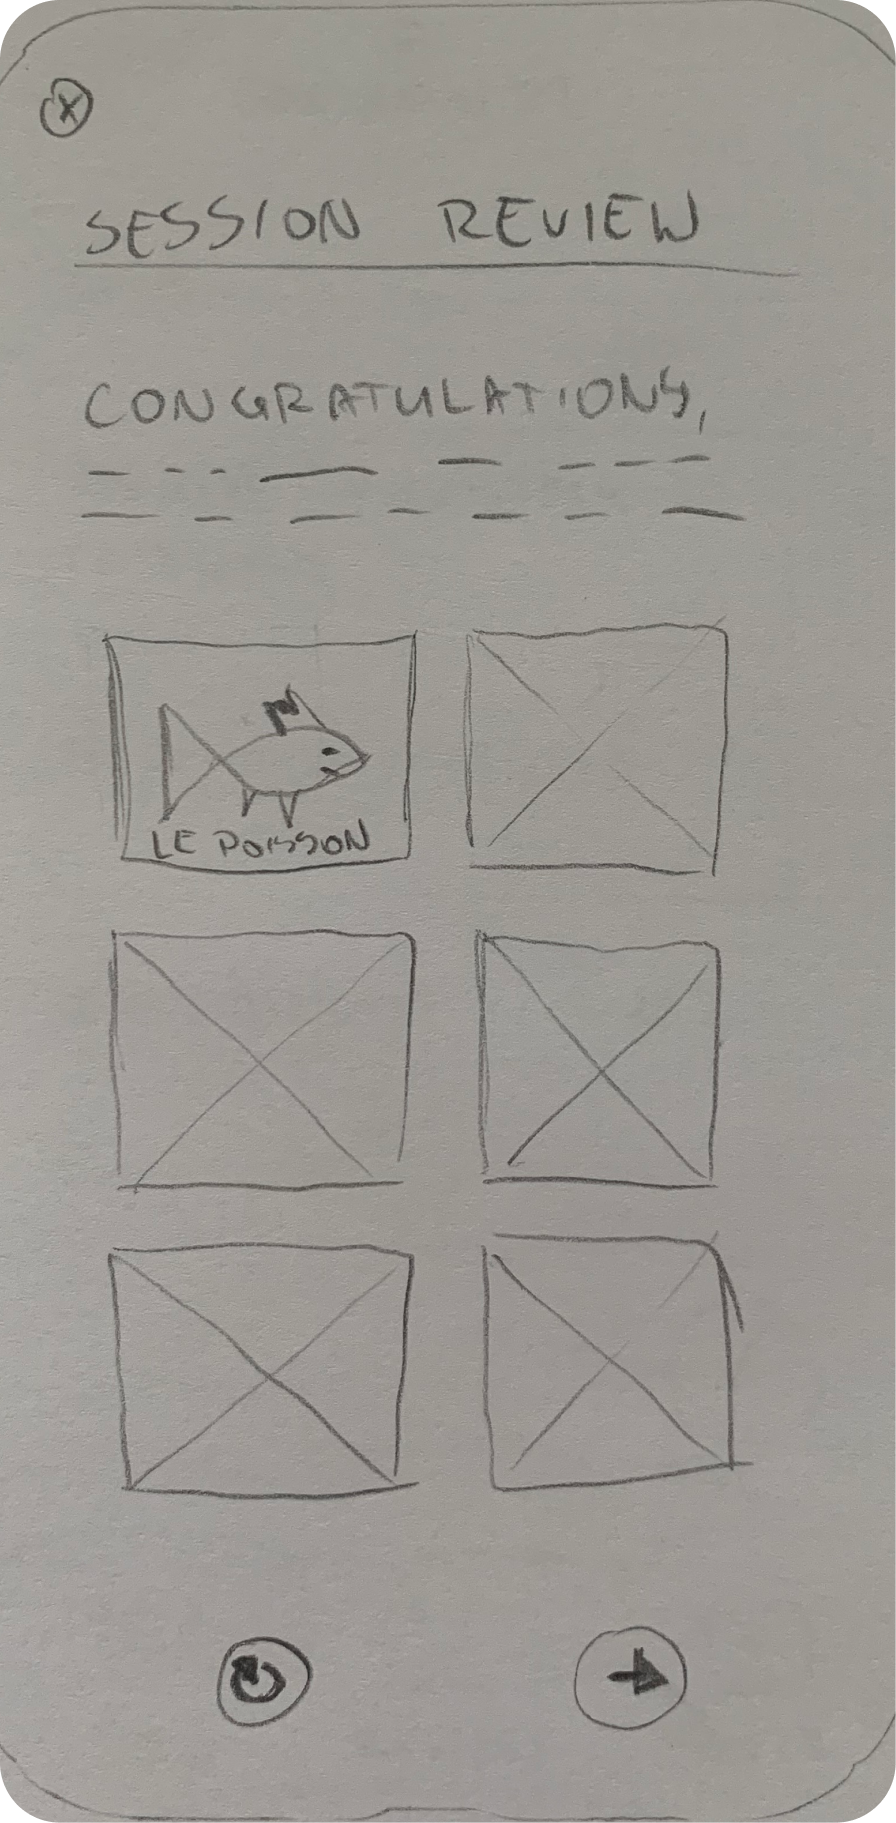 X
SESSION REVIEW
CONGRATULATIONS,
LE POISSON